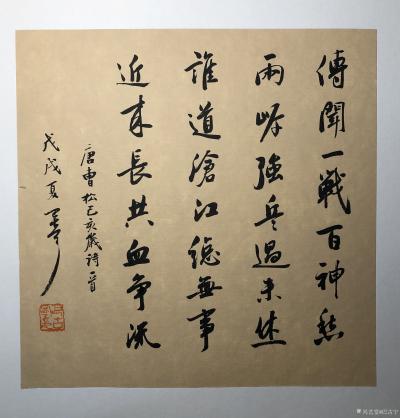 傳聞一戰百神愁
兩岸強兵過未休
誰道滄江總無事
近來長共血爭流
唐曹松己亥歲詩一首
戊戌夏